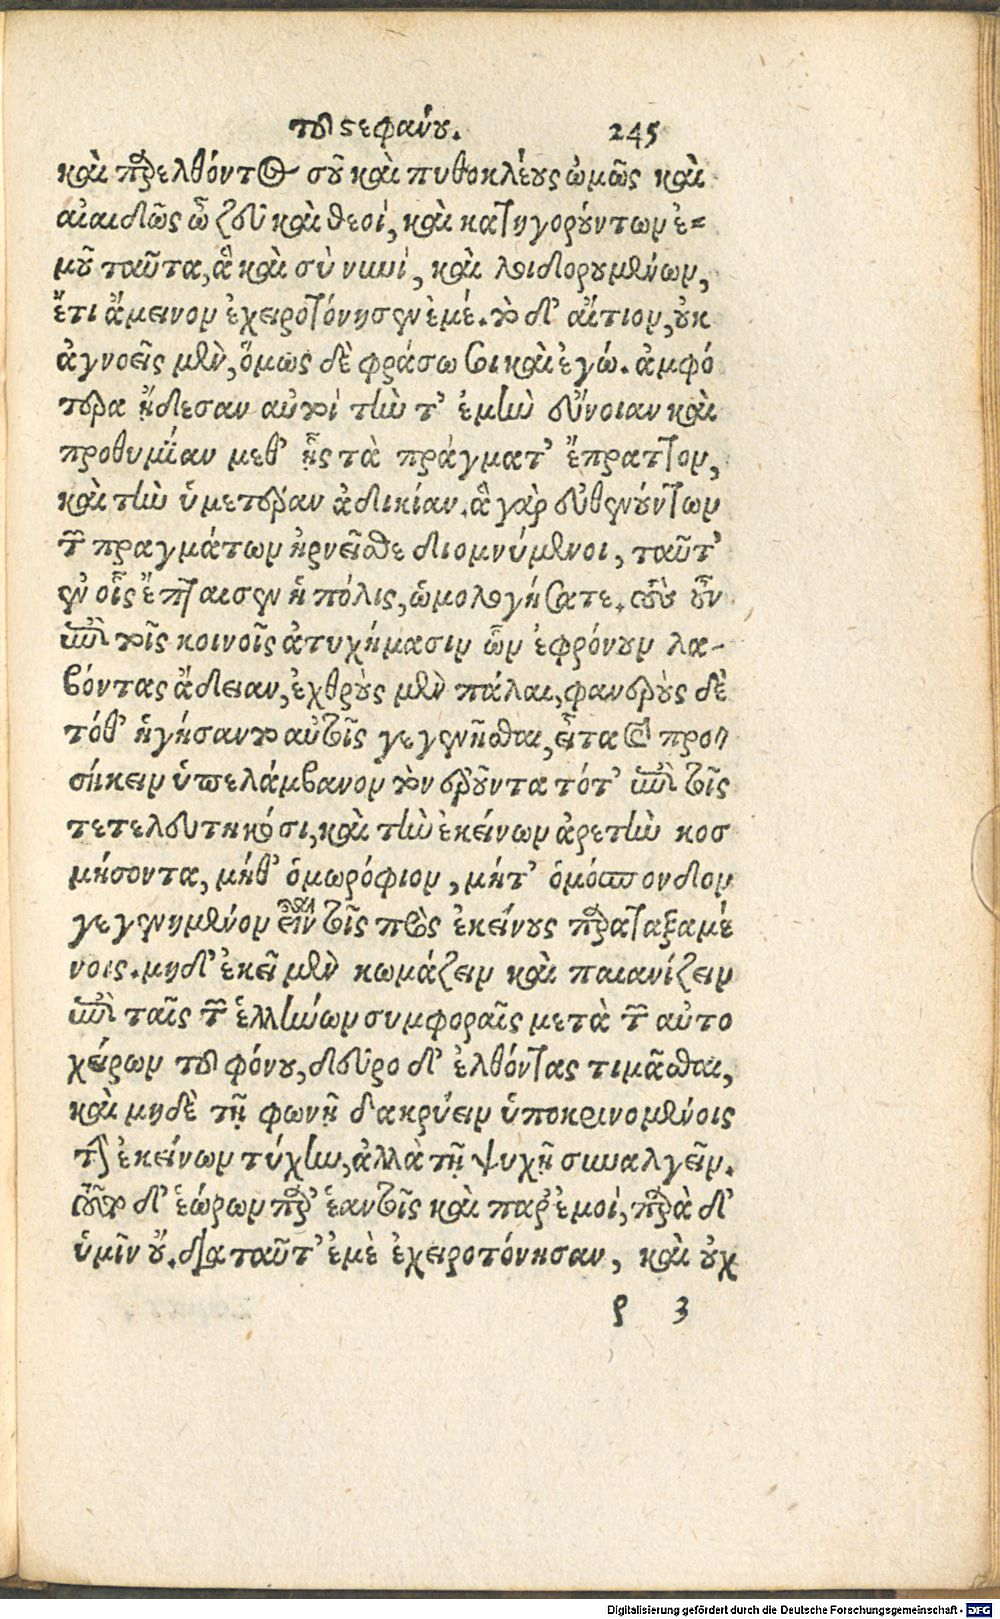 τοῦ στεφάνου. 245
καὶ παρελθόντος σοῦ καὶ πυθοκλέους ὠμῶς καὶ
ἀναιδῶς ὦ ζεῦ καὶ θεοί, καὶ κατηγορούντων ἐ=
μοῦ ταῦτα, ἃ καὶ σὺ νυνί, καὶ λοιδορουμένων,
ἔτι ἄμεινον ἐχειροτόνησεν ἐμέ. τὸ δ' αἴτιον, οὐκ
ἀγνοεῖς μὲν, ὅμως δὲ φράσω σοι καὶ ἐγώ. ἀμφό
τερα ᾔδεσαν αὐτοί τήν τ' ἐμὴν εὔνοιαν καὶ
προθυμίαν μεθ' ἧς τὰ πράγματ' ἔπραττον,
καὶ τὴν ὑμετέραν ἀδικίαν. ἃ γὰρ εὐθενούντων
τῶν πραγμάτων ἠρνεῖσθε διομνύμενοι, ταῦτ'
ἐν οἷς ἔπταισεν ἡ πόλις, ὡμολογήσατε. τοὺς οὖν
ἐπὶ τοῖς κοινοῖς ἀτυχήμασιν ὧν ἐφρόνουν λα-
βόντας ἄδειαν, ἐχθροὺς μὲν πάλαι, φανεροὺς δὲ
τόθ' ἡγήσαντο αὑτοῖς γεγενῆσθαι, εἶτα καὶ προσ
σήκειν ὑπελάμβανον τὸν ἐροῦντα τότ' ἐπὶ τοῖς
τετελευτηκόσι, καὶ τὴν ἐκείνων ἀρετὴν κοσ
μήσοντα, μήθ' ὁμωρόφιον, μήτ' ὁμόσπονδον
γεγενημένον εἶναι τοῖς πρὸς ἐκείνους παραταξαμέ
νοις. μηδ' ἐκεῖ μὲν κωμάζειν καὶ παιανίζειν
ἐπὶ ταῖς τῶν ἑλλήνων συμφοραῖς μετὰ τῶν αὐτο
χείρων τοῦ φόνου, δεῦρο δ' ἐλθόντας τιμᾶσθαι,
καὶ μηδὲ τῇ φωνῇ δακρύειν ὑποκρινομένοις
τὴν ἐκείνων τύχην, ἀλλὰ τῇ ψυχῇ συναλγεῖν.
τοῦτο δ' ἑώρων παρ' ἑαυτοῖς καὶ παρ' ἐμοί, παρὰ δ'
ὑμῖν οὔ. διὰ ταῦτ' ἐμὲ ἐχειροτόνησαν, καὶ οὐχ
ρ 3
Digitalisierung gefördert durch die Deutsche Forschungsgemeinschaft - DFG